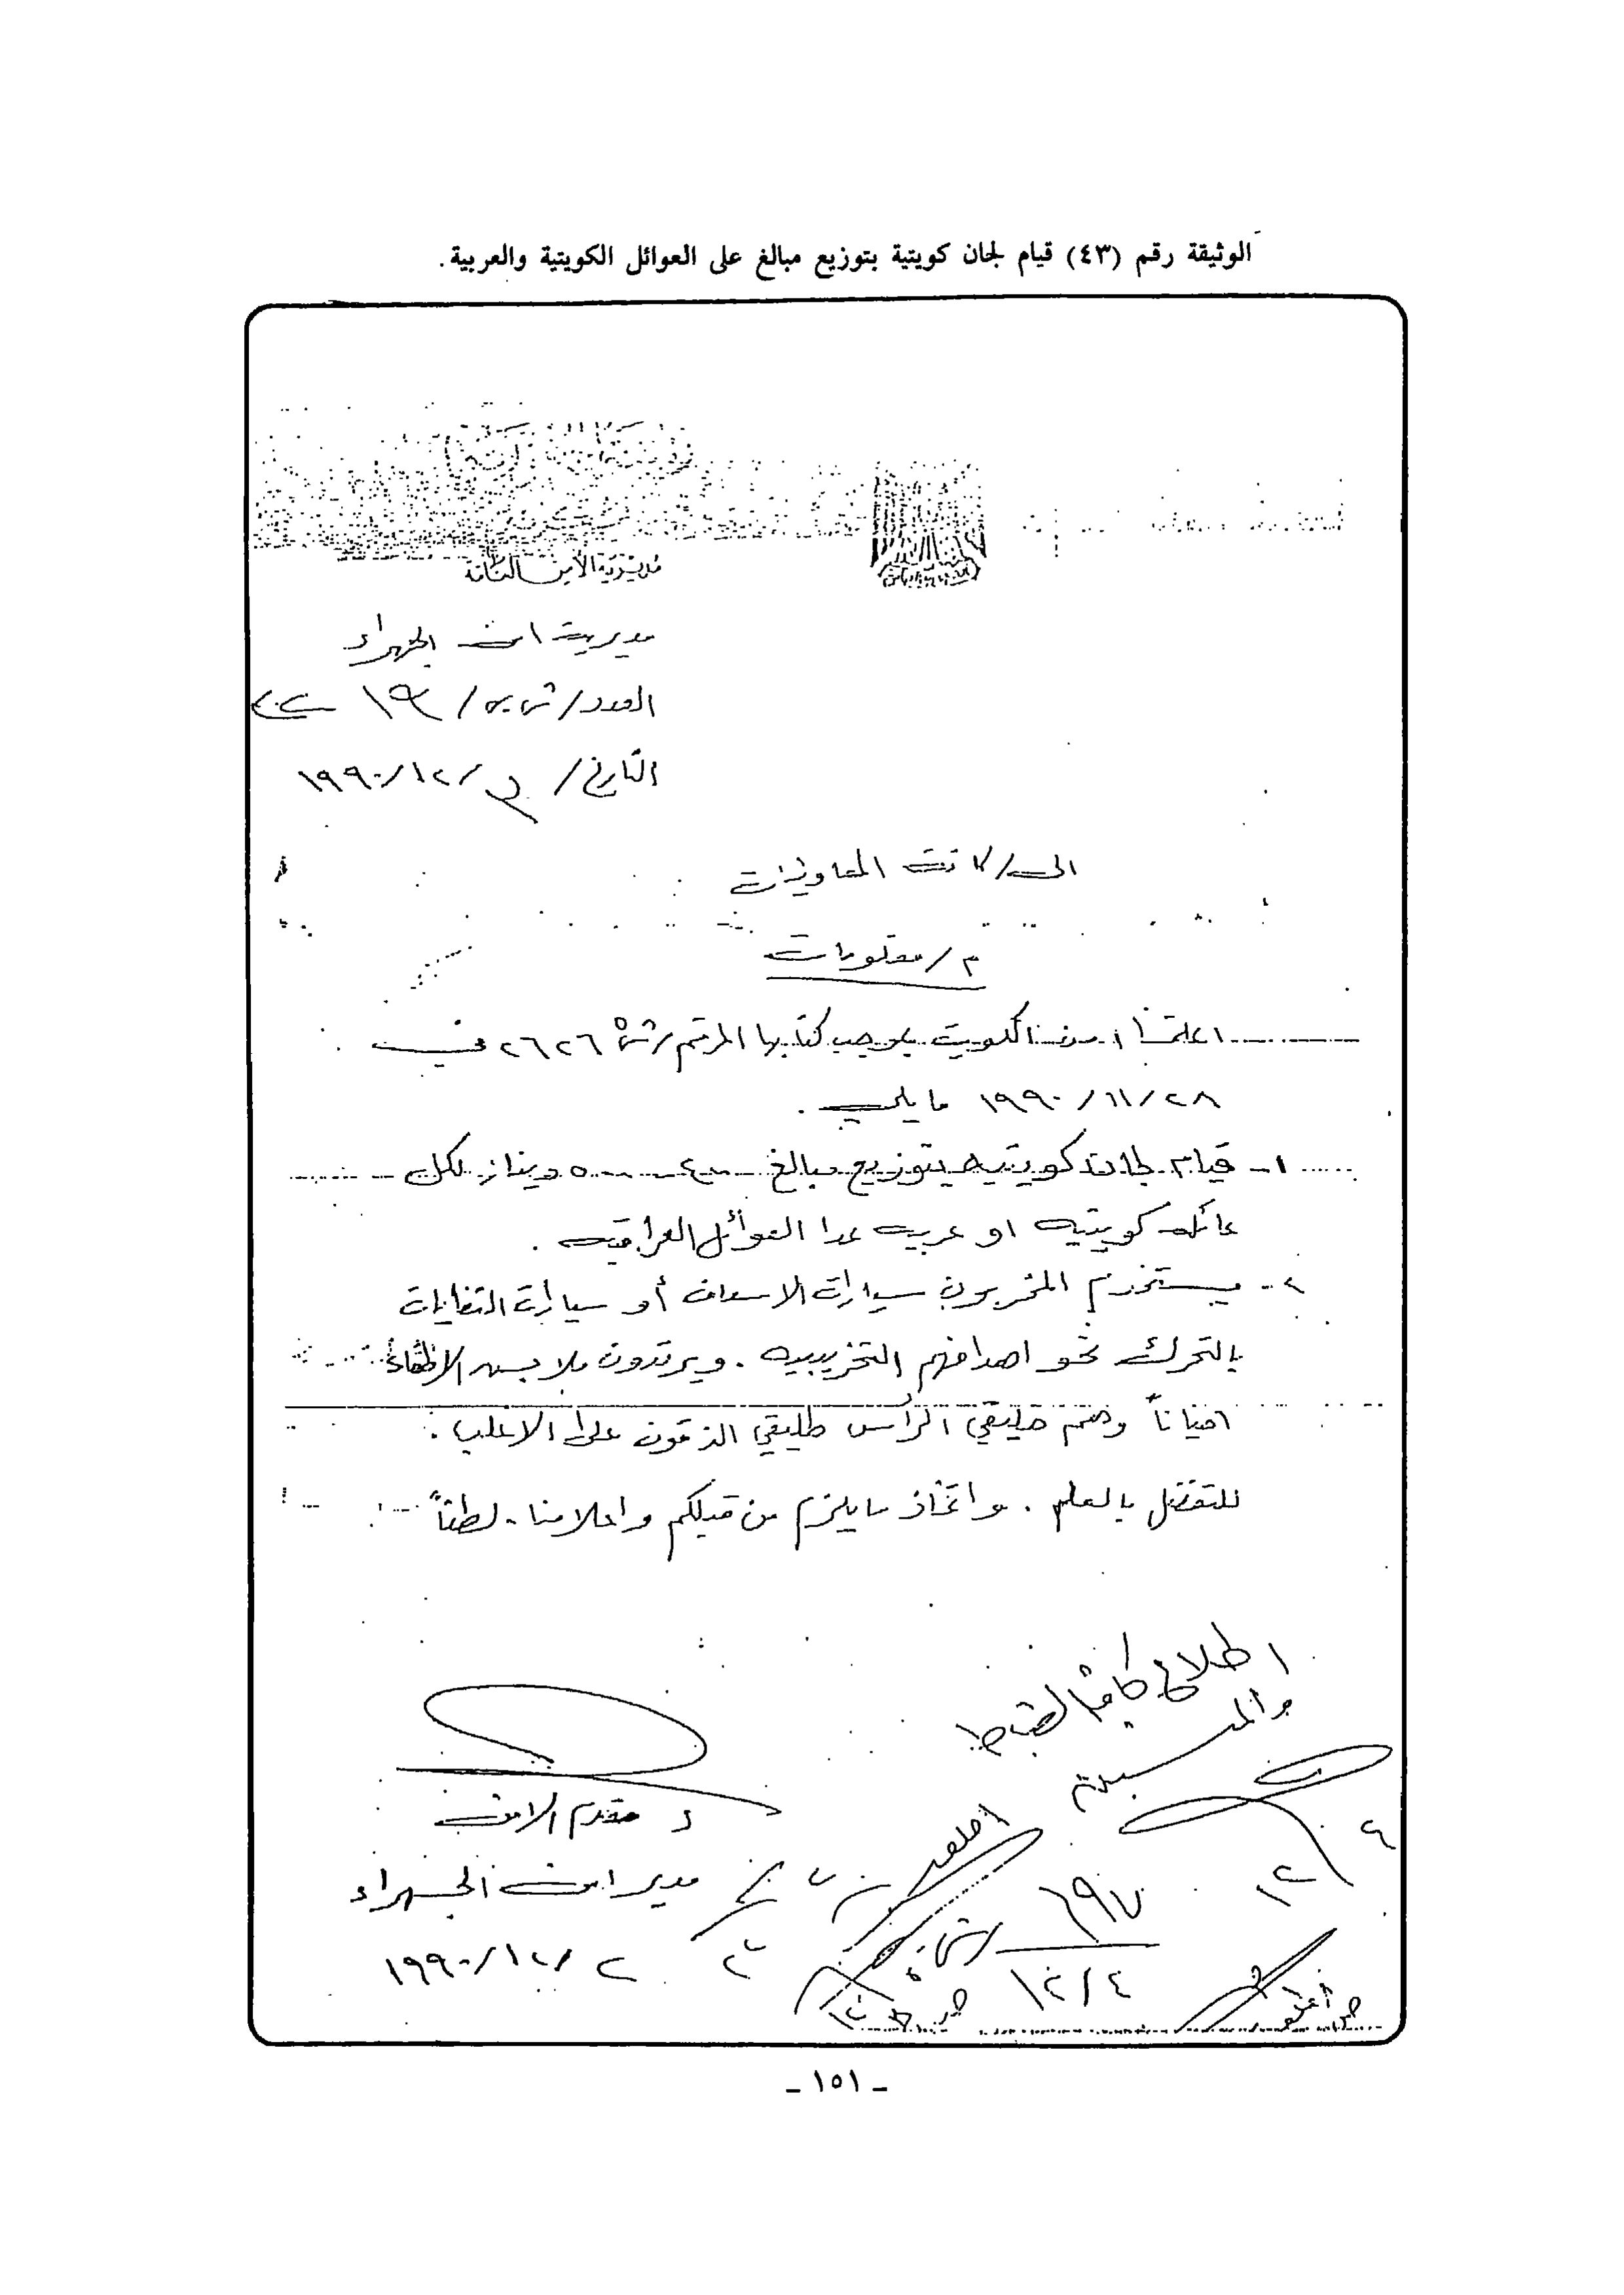 الوثيقة رقم (٤٣) قيام لجان كويتية بتوزيع مبالغ على العوائل الكويتية والعربية .
مديرية الأمن العامة
مديرية امن الجهراء
العدد / ش
التاريخ / ١٩٩٠/١٢/
الى / كافة المعاونيات
م / معلومات
اعلمتنا امن الكويت بموجب كتابها المرقم ش ٥ ٢٦٢٦ في
١٩٩٠/١١/٢٨ ما يلي .
١- قيام لجان كويتيه بتوزيع مبالغ ٤٠٠ - ٥٠٠ دينار لكل
عائله كويتيه او عربيه عدا العوائل العراقيه .
٢- يستخدم المخربون سيارات الاسعاف أو سيارات النفايات
بالتحرك نحو اهدافهم التخريبيه . ويرتدون ملابس الاطفاء
احياناً وهم حليقي الرأس طليقي الذقون على الاغلب .
للتفضل بالعلم . واتخاذ ما يلزم من قبلكم واعلامنا . لطفاً
اطلاع كافة الضباط
والمنتسبين
مقدم الامن
مدير امن الجهراء
١٩٩٠/١٢/٢
٦٩٧
١٢/٤
- ١٥١ -